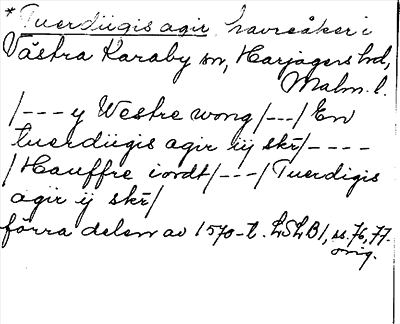 *Tuerdiigis agir, havreåker i
Västra Karaby sn, Harjagers hd,
Malm. l.
/---y Westre wong/---/En
tuerdiigis agir iij skr/----
/Hauffre iordt/---/Tuerdigis
agir ij skr/
förra delen av 1570-t. LSLB1, ss. 76, 77.
orig.